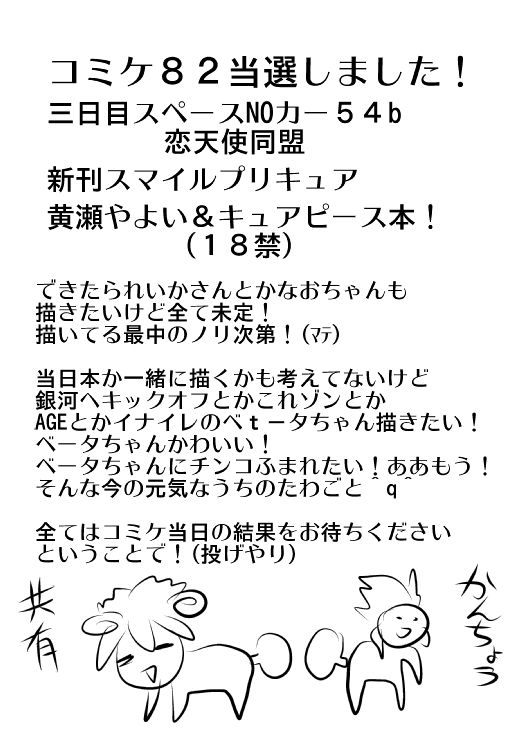 コミケ８２当選しました！
三日目スペースNOカー５４b
恋天使同盟
新刊スマイルプリキュア
黄瀬やよい＆キュアピース本！
(１８禁)
できたられいかさんとかなおちゃんも
描きたいけど全て未定！
描いてる最中のノリ次第！(ﾏﾃ)
当日本か一緒に描くかも考えてないけど
銀河へキックオフとかこれゾンとか
AGEとかイナイレのベｔータちゃん描きたい！
ベータちゃんかわいい！
ベータちゃんにチンコふまれたい！ああもう！
そんな今の元気なうちのたわごと＾q＾
全てはコミケ当日の結果をお待ちください
ということで！(投げやり)
共有
かんちょう